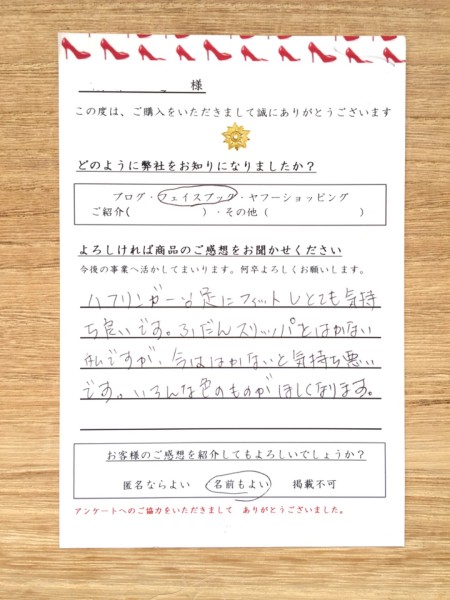 様
この度は、ご購入をいただきまして誠にありがとうございます
どのように弊社をお知りになりましたか？
ブログ・フェイスブック・ヤフーショッピング
ご紹介(　　　　　　)・その他（　　　　　　　）
よろしければ商品のご感想をお聞かせください
今後の事業へ活かしてまいります。何卒よろしくお願いします。
ハフリンガーは足にフィットしとても気持
ち良いです。ふだんスリッパとはかない
私ですが、今ははかないと気持ち悪い
です。いろんな色のものがほしくなります。
お客様のご感想を紹介してもよろしいでしょうか？
匿名ならよい　名前もよい　掲載不可
アンケートへのご協力をいただきまして　ありがとうございました。